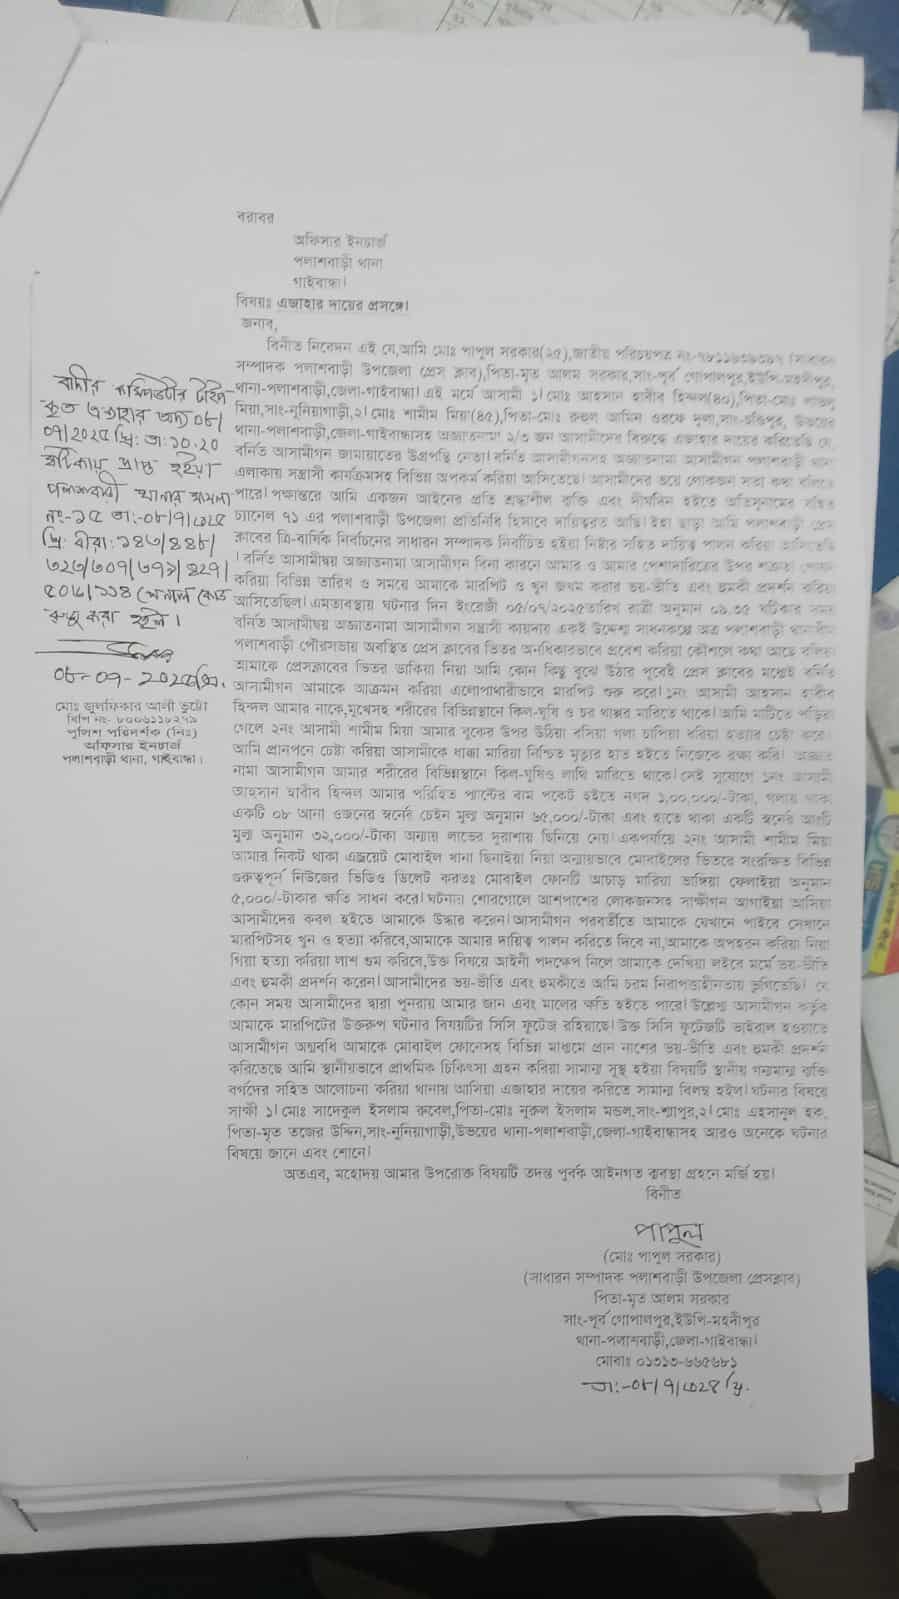 বরাবর
অফিসার ইনচার্জ
পলাশবাড়ী থানা
গাইবান্ধা।
বিষয়ঃ এজাহার দায়ের প্রসঙ্গে।
জনাব,
বিনীত নিবেদন এই যে,আমি মোঃ পাপুল সরকার(২৫),জাতীয় পরিচয়পত্র নং- (সাধারন
সম্পাদক পলাশবাড়ী উপজেলা প্রেস ক্লাব),পিতা-মৃত আলম সরকার,সাং-পূর্ব গোপালপুর,ইউপি-মহদীপুর,
থানা-পলাশবাড়ী,জেলা-গাইবান্ধা। এই মর্মে আসামী ১। মোঃ আহসান হাবীব হিন্দল(৪০),পিতা-মোঃ
মিয়া,সাং-নুনিয়াগাড়ী,২। মোঃ শামীম মিয়া(৪৫),পিতা-মোঃ রুহুল আমিন ওরফে দুলা,সাং-হরিপুর, উভয়ের
থানা-পলাশবাড়ী,জেলা-গাইবান্ধাসহ অজ্ঞাতনামা ২/৩ জন আসামীদের বিরুদ্ধে এজাহার দায়ের করিতেছি যে,
বর্নিত আসামীগন জামায়াতের উগ্রপন্থি নেতা। বর্নিত আসামীগনসহ অজ্ঞাতনামা আসামীগন পলাশবাড়ী থানা
এলাকায় সন্ত্রাসী কার্যক্রমসহ বিভিন্ন অপকর্ম করিয়া আসিতেছে। আসামীদের ভয়ে লোকজন সত্য কথা বলিতে
পারে। পক্ষান্তরে আমি একজন আইনের প্রতি শ্রদ্ধাশীল ব্যক্তি এবং দীর্ঘদিন হইতে অতিসুনামের সহিত
চ্যানেল ৭১ এর পলাশবাড়ী উপজেলা প্রতিনিধি হিসাবে দায়িত্বরত আছি। ইহা ছাড়া আমি পলাশবাড়ী প্রেস
ক্লাবের ত্রি-বার্ষিক নির্বাচনের সাধারন সম্পাদক নির্বাচিত হইয়া নিষ্ঠার সহিত দায়িত্ব পালন করিয়া আসিতেছি
। বর্নিত আসামীদ্বয় অজ্ঞাতনামা আসামীগন বিনা কারনে আমার ও আমার পেশাদারিত্বের উপর শত্রুতা পোষন
করিয়া বিভিন্ন তারিখ ও সময়ে আমাকে মারপিট ও খুন জখম করার ভয়-ভীতি এবং হুমকী প্রদর্শন করিয়া
আসিতেছিল। এমতাবস্থায় ঘটনার দিন ইংরেজী ০৫/০৭/২০২৫তারিখ রাত্রী অনুমান ০৯.৩৫ ঘটিকার সময়
বর্নিত আসামীদ্বয় অজ্ঞাতনামা আসামীগন সন্ত্রাসী কায়দায় একই উদ্দেশ্য সাধনকল্পে অত্র পলাশবাড়ী থানাধীন
পলাশবাড়ী পৌরসভায় অবস্থিত প্রেস ক্লাবের ভিতর অনধিকারভাবে প্রবেশ করিয়া কৌশলে কথা আছে বলিয়া
আমাকে প্রেসক্লাবের ভিতর ডাকিয়া নিয়া আমি কোন কিছু বুঝে উঠার পূর্বেই প্রেস ক্লাবের মধ্যেই বর্নিত
আসামীগন আমাকে আক্রমন করিয়া এলোপাথারীভাবে মারপিট শুরু করে। ১নং আসামী আহসান হাবীব
হিন্দল আমার নাকে,মুখেসহ শরীরের বিভিন্নস্থানে কিল-ঘুষি ও চর থাপ্পর মারিতে থাকে। আমি মাটিতে পড়িয়া
গেলে ২নং আসামী শামীম মিয়া আমার বুকের উপর উঠিয়া বসিয়া গলা চাপিয়া ধরিয়া হত্যার চেষ্টা করে।
আমি প্রানপনে চেষ্টা করিয়া আসামীকে ধাক্কা মারিয়া নিশ্চিত মৃত্যুর হাত হইতে নিজেকে রক্ষা করি। অজ্ঞাত
নামা আসামীগন আমার শরীরের বিভিন্নস্থানে কিল-ঘুষিও লাথি মারিতে থাকে। সেই সুযোগে ১নং আসামী
আহসান হাবীব হিন্দল আমার পরিহিত প্যান্টের বাম পকেট হইতে নগদ ১,০০,০০০/-টাকা, গলায় থাকা
একটি ০৮ আনা ওজনের স্বর্নের চেইন মূল্য অনুমান ৬৫,০০০/-টাকা এবং হাতে থাকা একটি স্বর্নের আংটি
মূল্য অনুমান ৩২,০০০/-টাকা অন্যায় লাভের দুরাশায় ছিনিয়ে নেয়। একপর্যায়ে ২নং আসামী শামীম মিয়া
আমার নিকট থাকা এন্ড্রয়েট মোবাইল খানা ছিনাইয়া নিয়া অন্যায়ভাবে মোবাইলের ভিতরে সংরক্ষিত বিভিন্ন
গুরুত্বপূর্ন নিউজের ভিডিও ডিলেট করতঃ মোবাইল ফোনটি আচাড় মারিয়া ভাঙ্গিয়া ফেলাইয়া অনুমান
৫,০০০/-টাকার ক্ষতি সাধন করে। ঘটনার শোরগোলে আশপাশের লোকজনসহ সাক্ষীগন আগাইয়া আসিয়া
আসামীদের কবল হইতে আমাকে উদ্ধার করেন। আসামীগন পরবর্তীতে আমাকে যেখানে পাইবে সেখানে
মারপিটসহ খুন ও হত্যা করিবে,আমাকে আমার দায়িত্ব পালন করিতে দিবে না,আমাকে অপহরন করিয়া নিয়া
গিয়া হত্যা করিয়া লাশ গুম করিবে,উক্ত বিষয়ে আইনী পদক্ষেপ নিলে আমাকে দেখিয়া লইবে মর্মে ভয়-ভীতি
এবং হুমকী প্রদর্শন করেন। আসামীদের ভয়-ভীতি এবং হুমকীতে আমি চরম নিরাপত্তাহীনতায় ভুগিতেছি। যে
কোন সময় আসামীদের দ্বারা পুনরায় আমার জান এবং মালের ক্ষতি হইতে পারে। উল্লেখ্য আসামীগন কর্তৃক
আমাকে মারপিটের উক্তরুপ ঘটনার বিষয়টির সিসি ফুটেজ রহিয়াছে। উক্ত সিসি ফুটেজটি ভাইরাল হওয়াতে
আসামীগন অদ্যবধি আমাকে মোবাইল ফোনসহ বিভিন্ন মাধ্যমে প্রান নাশের ভয়-ভীতি এবং হুমকী প্রদর্শন
করিতেছে আমি স্থানীয়ভাবে প্রাথমিক চিকিৎসা গ্রহন করিয়া সামান্য সুস্থ হইয়া বিষয়টি স্থানীয় গন্যমান্য ব্যক্তি
বর্গদের সহিত আলোচনা করিয়া থানায় আসিয়া এজাহার দায়ের করিতে সামান্য বিলম্ব হইল। ঘটনার বিষয়ে
সাক্ষী ১। মোঃ সাদেকুল ইসলাম রুবেল,পিতা-মোঃ নুরুল ইসলাম মন্ডল,সাং-শ্যাপুর,২। মোঃ এহসানুল হক,
পিতা-মৃত তজের উদ্দিন,সাং-নুনিয়াগাড়ী,উভয়ের থানা-পলাশবাড়ী,জেলা-গাইবান্ধাসহ আরও অনেকে ঘটনার
বিষয়ে জানে এবং শোনে।
অতএব, মহোদয় আমার উপরোক্ত বিষয়টি তদন্ত পূর্বক আইনগত ব্যবস্থা গ্রহনে মর্জি হয়।
বিনীত
পাপুল
(মোঃ পাপুল সরকার)
(সাধারন সম্পাদক পলাশবাড়ী উপজেলা প্রেসক্লাব)
পিতা-মৃত আলম সরকার
সাং-পূর্ব গোপালপুর,ইউপি-মহদীপুর
থানা-পলাশবাড়ী,জেলা-গাইবান্ধা।
মোবাঃ ০১৩১৩-৬৬৫৬৮১
তা:-০৮/৭/২০২৫ খ্রি.
বাদীর কম্পিউটার টাইপ
কৃত এজাহার অদ্য ০৮/
০৭/২০২৫ খ্রি: তা: ১০.২০
ঘটিকায় প্রাপ্ত হইয়া
পলাশবাড়ী থানার মামলা
নং-১৫ তা:-০৮/৭/২০২৫
খ্রি: ধারা: ১৪৩/৪৪৮/
৩২৩/৩০৭/৩৭৯/৪২৭/
৫০৬/১১৪ পেনাল কোড
রুজু করা হইল।
০৮-০৭-২০২৫খ্রি.
মোঃ জুলফিকার আলী ভুট্টো
বিপি নং- ৮০০৬১১৮২৭৯
পুলিশ পরিদর্শক (নিঃ)
অফিসার ইনচার্জ
পলাশবাড়ী থানা, গাইবান্ধা।